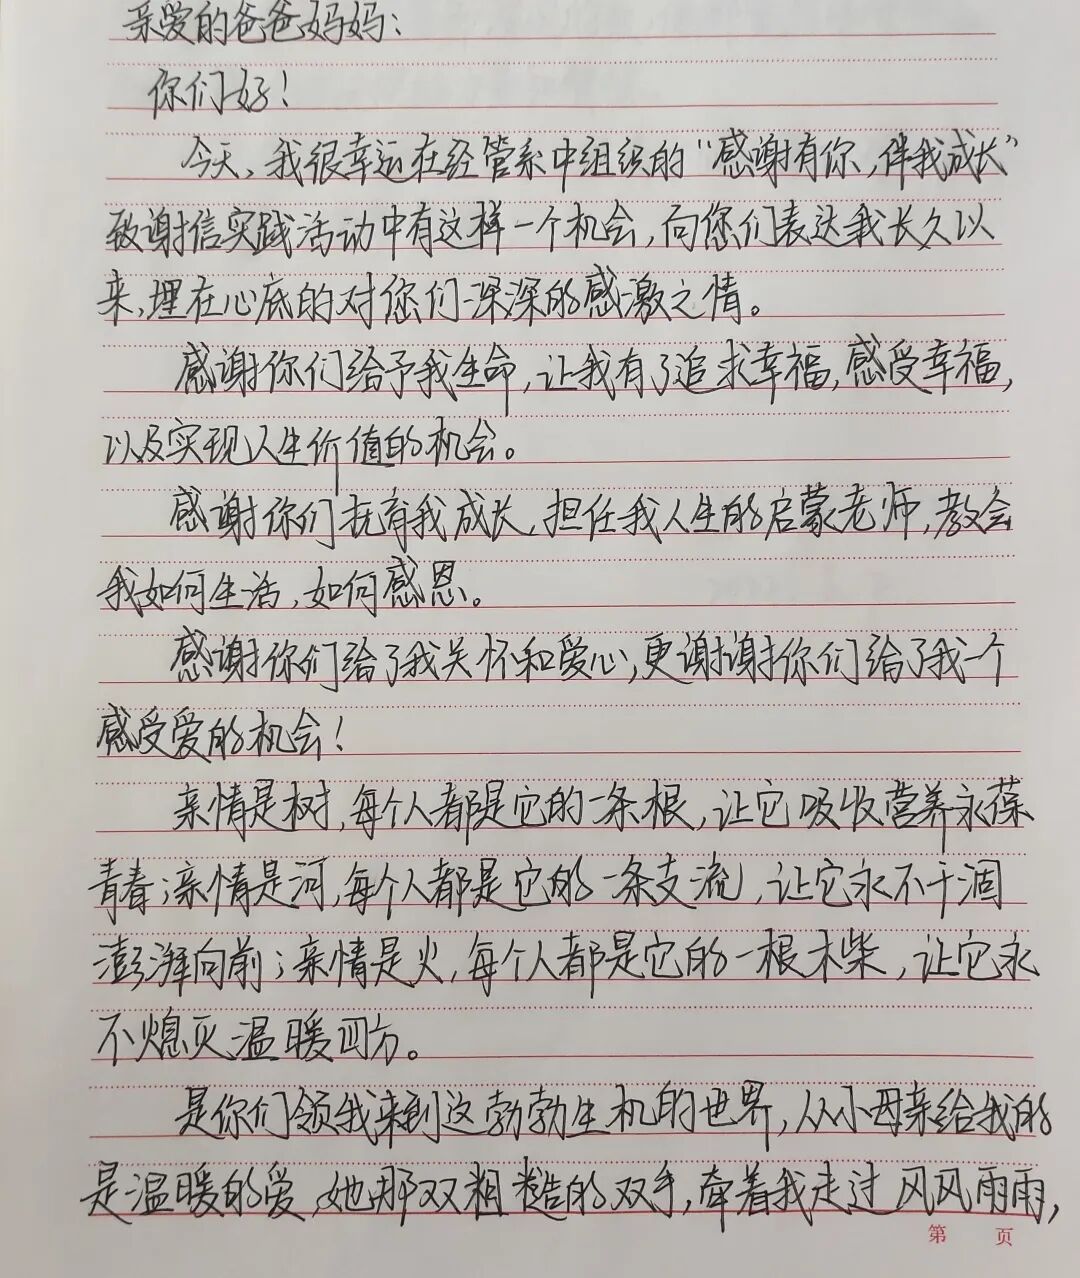 亲爱的爸爸妈妈：
你们好！
今天，我很幸运在经管系中组织的“感谢有你，伴我成长”
致谢信实践活动中有这样一个机会，向您们表达我长久以
来，埋在心底的对您们深深的感激之情。
感谢你们给予我生命，让我有了追求幸福，感受幸福，
以及实现人生价值的机会。
感谢你们抚育我成长，担任我人生的启蒙老师，教会
我如何生活，如何感恩。
感谢你们给了我关怀和爱心，更谢谢你们给了我一个
感受爱的机会！
亲情是树，每个人都是它的一条根，让它吸收营养永葆
青春；亲情是河，每个人都是它的一条支流，让它永不干涸
澎湃向前；亲情是火，每个人都是它的一根木柴，让它永
不熄灭温暖四方。
是你们领我来到这勃勃生机的世界，从小母亲给我的
是温暖的爱，她那双粗糙的双手，牵着我走过风风雨雨，
第 页